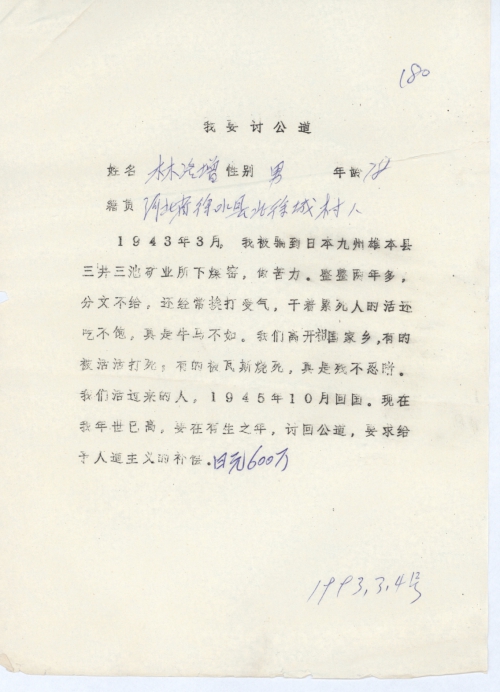 180
我要讨公道
姓名 林治增 性别 男 年龄 78
籍贯 河北省徐水县北徐城村人
1943年3月，我被骗到日本九州雄本县
三井三池矿业所下煤窑，做苦力。整整两年多，
分文不给，还经常挨打受气，干着累死人的活还
吃不饱，真是牛马不如。我们离开祖国家乡，有的
被活活打死；有的被瓦斯烧死，真是残不忍睹。
我们活过来的人，1945年10月回国。现在
我年世已高，要在有生之年，讨回公道，要求给
于人道主义的补偿.日元600万
1993.3.4号